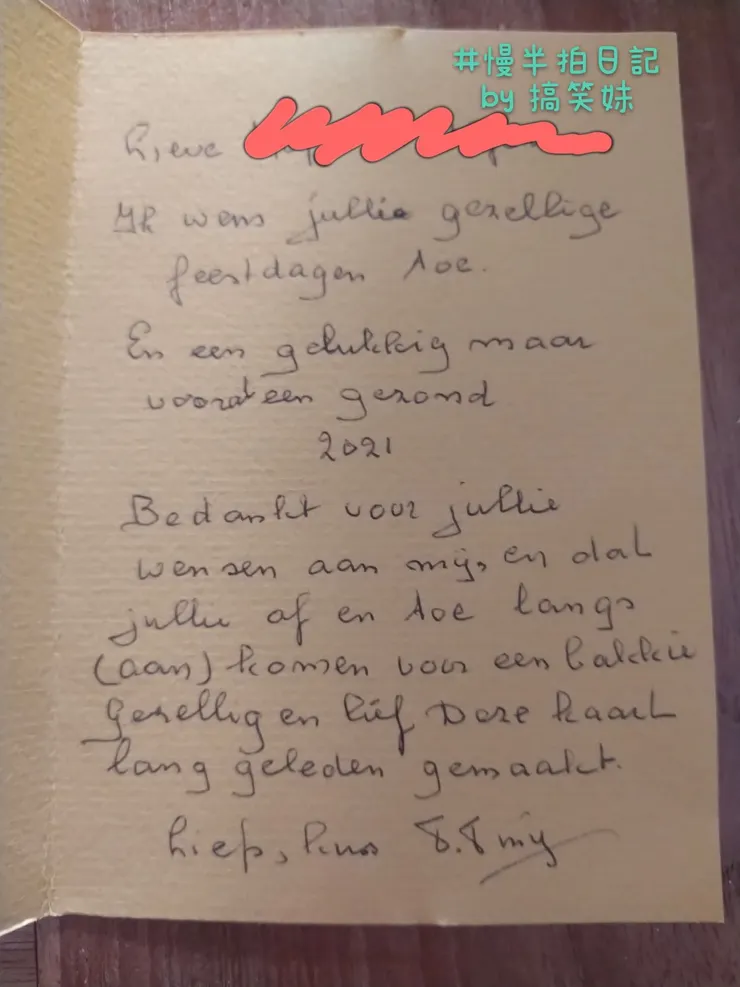 #慢半拍日記
by 搞笑妹
Lieve
Ik wens jullie gezellige
feestdagen toe.
En een gelukkig maar
vooral een gezond
2021
Bedankt voor jullie
wensen aan mij, en dat
jullie af en toe langs
(aan) komen voor een bakkie
Gezellig en lief Deze kaart
lang geleden gemaakt.
liefs, kus